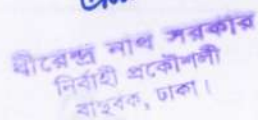 ধীরেন্দ্র নাথ সরকার
নির্বাহী প্রকৌশলী
বাহবক, ঢাকা।